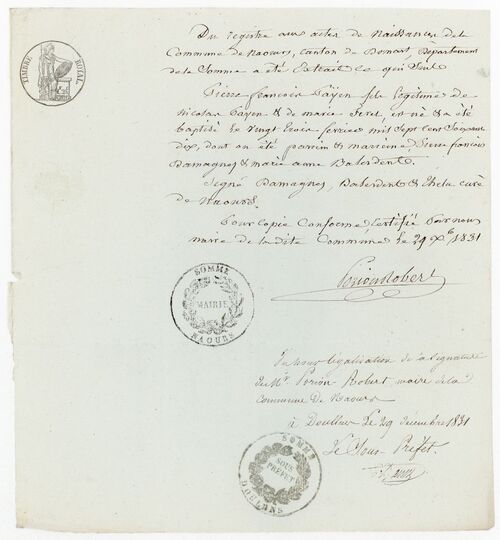 TIMBRE ROYAL
Du registre aux actes de Naissances de la
Commune de Naours, canton de Domart, Département
de la Somme a été Extrait ce qui Suit
Pierre françois Payen fils légitime de
Nicolas Payen & de marie, est né & a été
baptisé le vingt trois fevrier mil Sept Cent Soixante
dix, dont on été parrin & marrienne, Pierre françois
Damagnez & marie anne Baledent.
Signé Damagnez, Baledent & curé
de Naours.
Pour copie Conforme Certifiée Par nous
maire de la dite Commune le 29 Xbre 1831
Perion Robert
SOMME
MAIRIE
NAOURS
Vu pour légalisation de la Signature
du Mr. Perion Robert maire de la
Commune de Naours
à Doullens le 29 décembre 1831
Le Sous Préfet,
SOMME
SOUS
PRÉFET
DOULENS